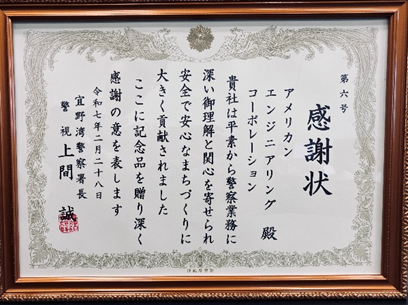 第六号
感謝状
アメリカン
エンジニアリング
コーポレーション 殿
貴社は平素から警察業務に
深い御理解と関心を寄せられ
安全で安心なまちづくりに
大きく貢献されました
ここに記念品を贈り深く
感謝の意を表します
令和七年二月二十八日
宜野湾警察署長
警視 上間 誠